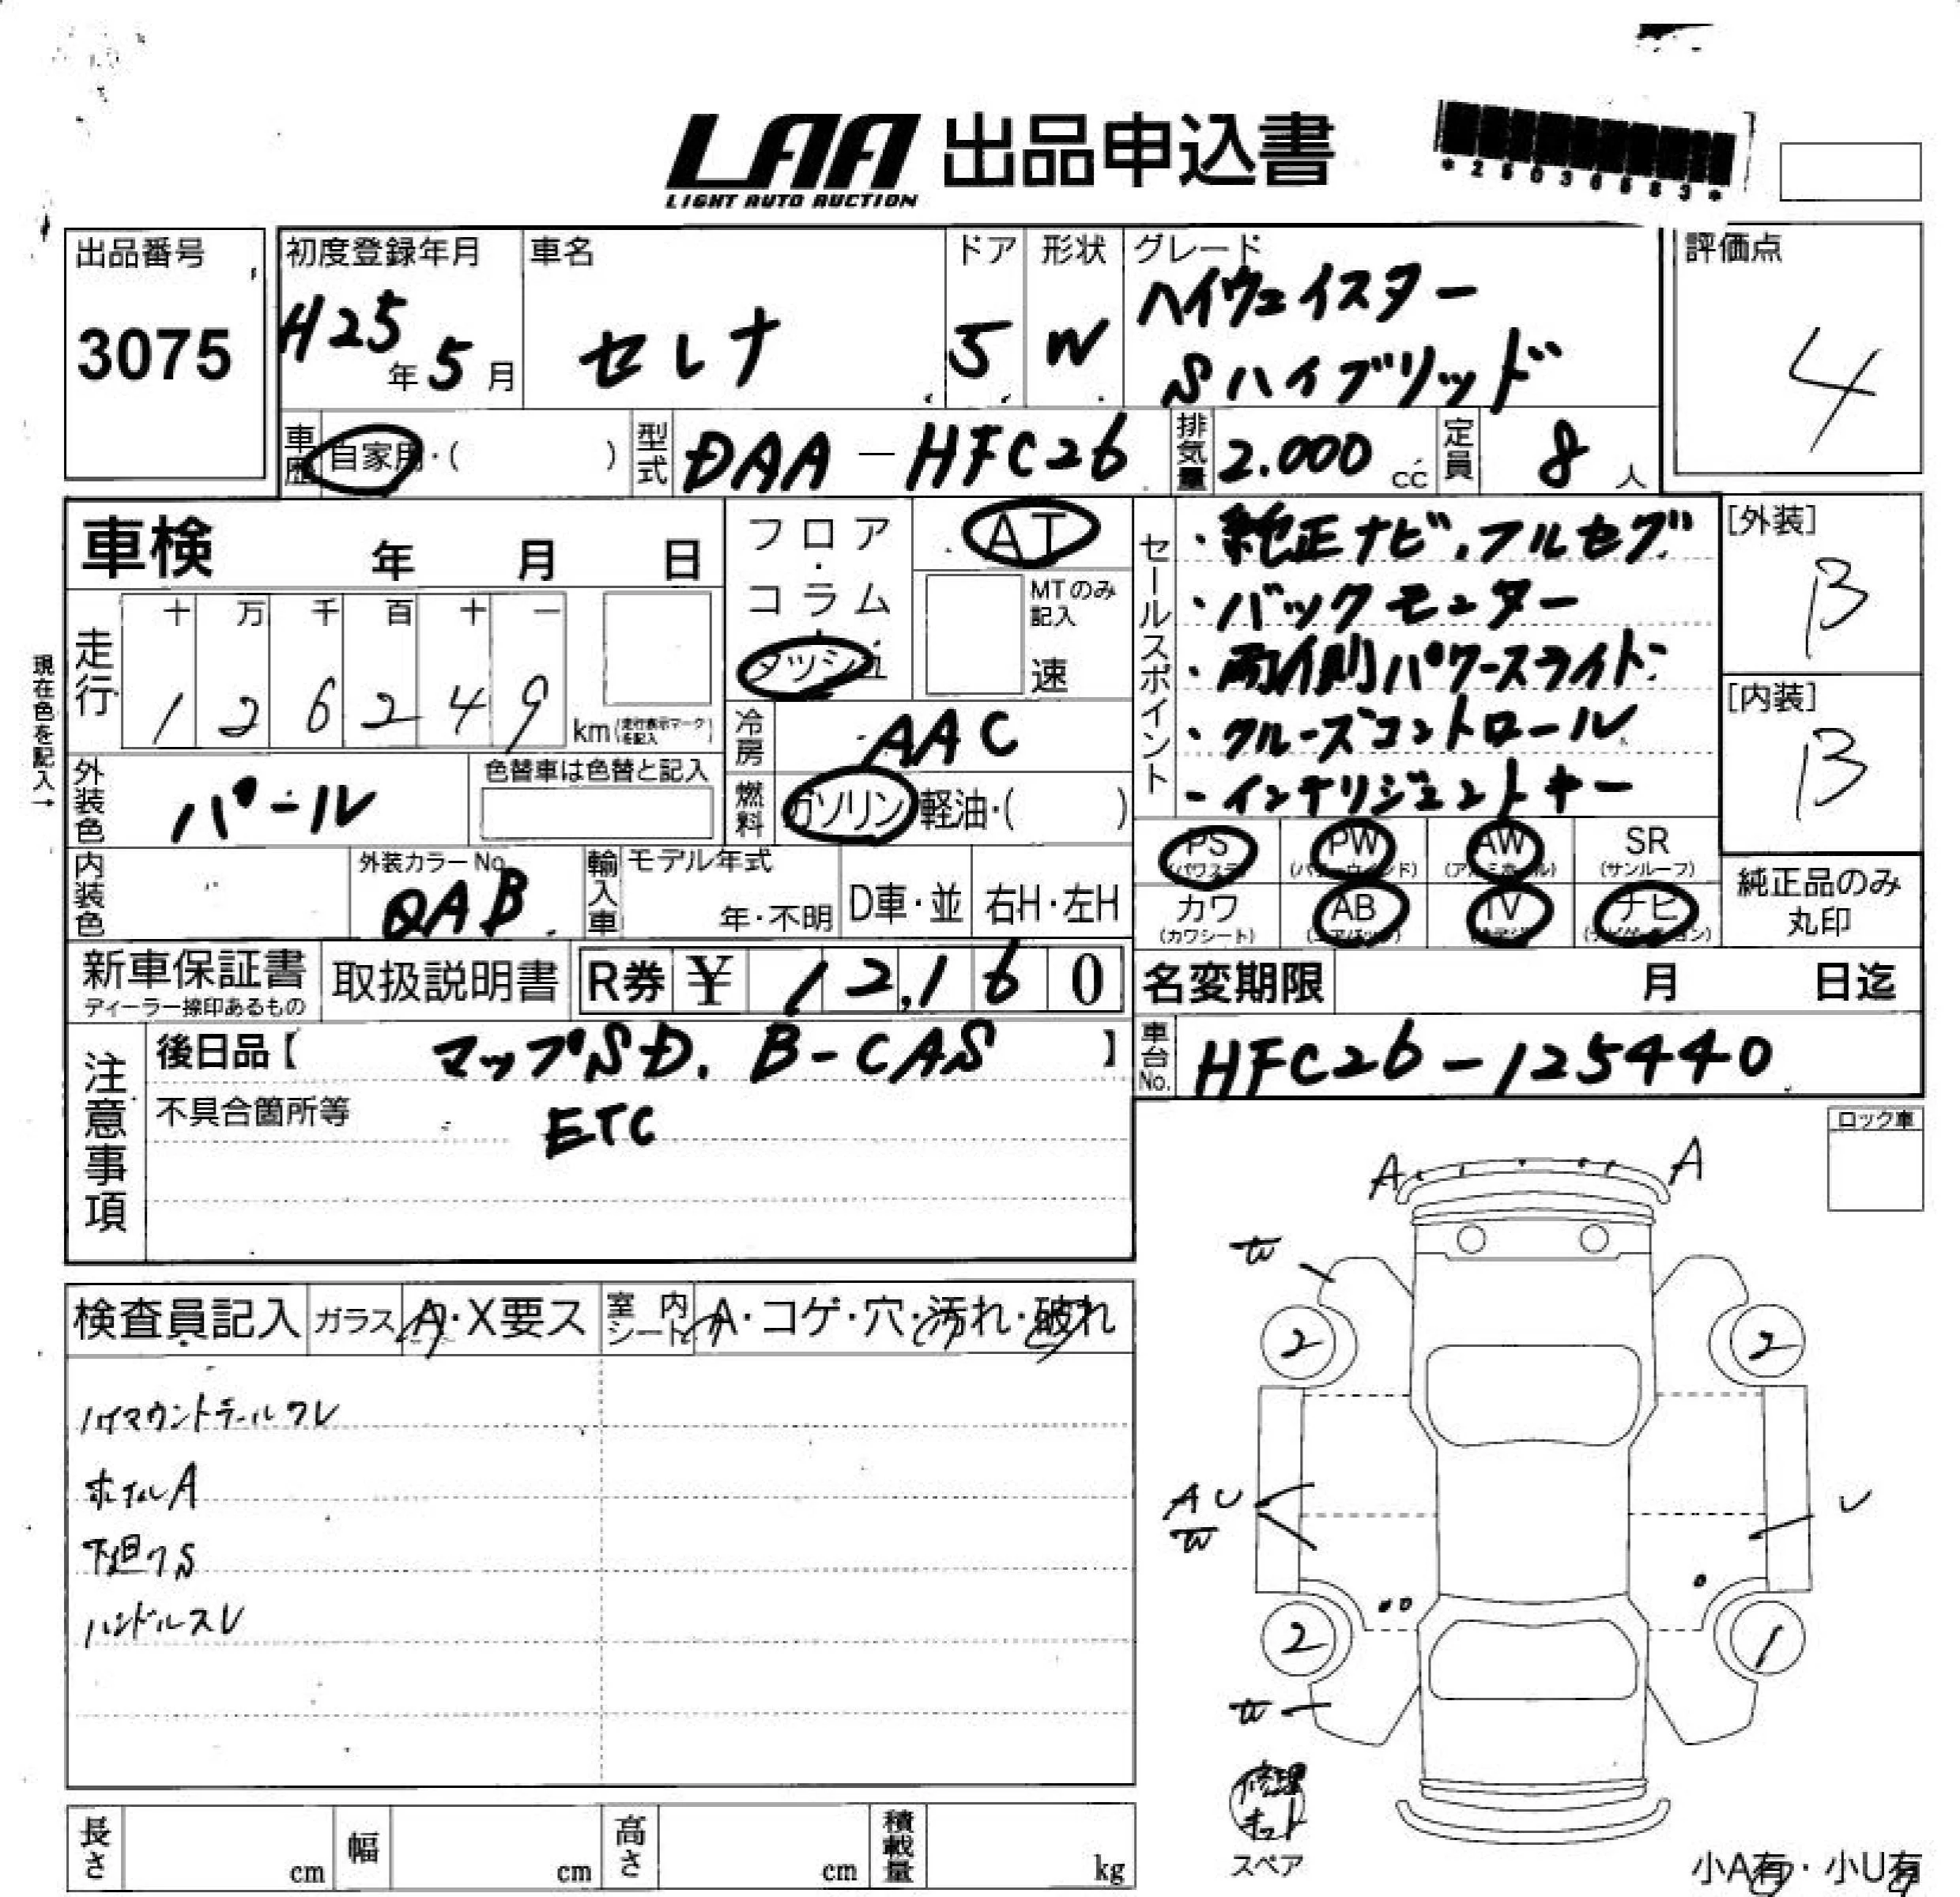 LAA 出品申込書
LIGHT AUTO AUCTION
出品番号
3075
初度登録年月
H25年5月
車名
セレナ
ドア
5
形状
W
グレード
ハイウェイスター
Sハイブリッド
評価点
4
車歴
自家用・( )
型式
DAA-HFC26
排気量
2.000 cc
定員
8人
車検 年 月 日
フロア・コラム
ダッシュ
AT
MTのみ記入
速
現在色を記入→
走行
十 万 千 百 十 一
1 2 6 2 4 9
km(走行表示マークを記入)
冷房
AAC
燃料
ガソリン・軽油・( )
外装色
パール
色替車は色替と記入
内装色
外装カラーNo.
QAB
輸入車
モデル年式
年・不明
D車・並
右H・左H
セールスポイント
・純正ナビ.フルセグ
・バックモニター
・両側パワースライド
・クルーズコントロール
-インテリジェントキー
[外装]
B
[内装]
B
PS
(パワステ)
PW
(パワーウインド)
AW
(アルミホイル)
SR
(サンルーフ)
カワ
(カワシート)
AB
(エアバック)
TV
ナビ
(ナビゲーション)
純正品のみ
丸印
新車保証書
ディーラー捺印あるもの
取扱説明書
R券 ¥ 12,160
名変期限 月 日迄
注意事項
後日品【 マップSD. B-CAS 】
不具合箇所等
ETC
車台No.
HFC26-125440
ロック車
検査員記入
ガラス A・X要ス
室内シート A・コゲ・穴・汚れ・破れ
ハイマウントテールワレ
ホイルA
下廻りS
ハンドルスレ
A A
W
2 2
A U
W
U
2 1
W
修理キット
スペア
小A有・小U有
長さ cm
幅 cm
高さ cm
積載量 kg